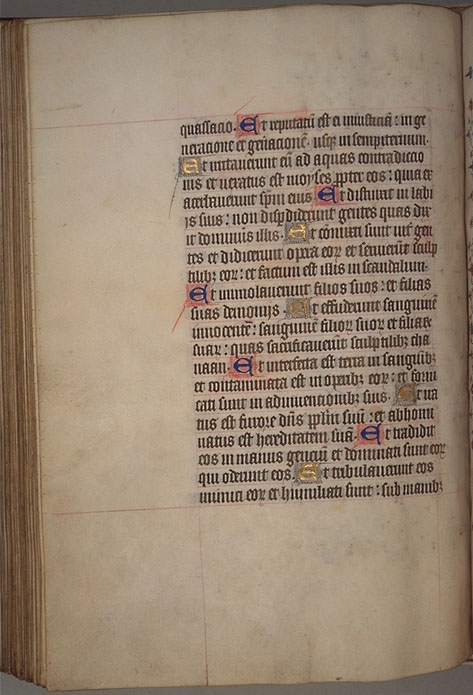 quassacio. Et reputatū est ei iniusticiā: in ge
neracione et gñacionē. usq; in sempiternum.
Et irritauerunt eū ad aquas contradiccio
nis et uexatus est moyses ꝓpter eos: quia ex
acerbauerunt spm̄ eius Et distinxit in labi
is suis: non disꝑdiderunt gentes quas dix
it dominus illis. Et cōmixti sunt int̄ gen
tes et didicerunt opera eoꝝ et seruierūt sculp
tilibȝ eoꝝ: et factum est illis in scandalum.
Et immolauerunt filios suos: et filias
suas demonijs. Et effuderunt sanguinē
innocentē: sanguinē filioꝝ suoꝝ et filiaꝝ
suaꝝ: quas sacrificauerūt sculptilibȝ cha
naan. Et interfecta est terra in sanguībȝ
et contaminata est in operibȝ eoꝝ: et forni
cati sunt in adinuentionibȝ suis. Et ira
tus est furore dn̄s pplm̄ suū: et abhomi
natus est hereditatem suā. Et tradidit
eos in manus gencium et dominati sunt eoꝝ
qui oderunt eos. Et tribulauerunt eos
inimici eoꝝ et humiliati sunt: sub manibȝ